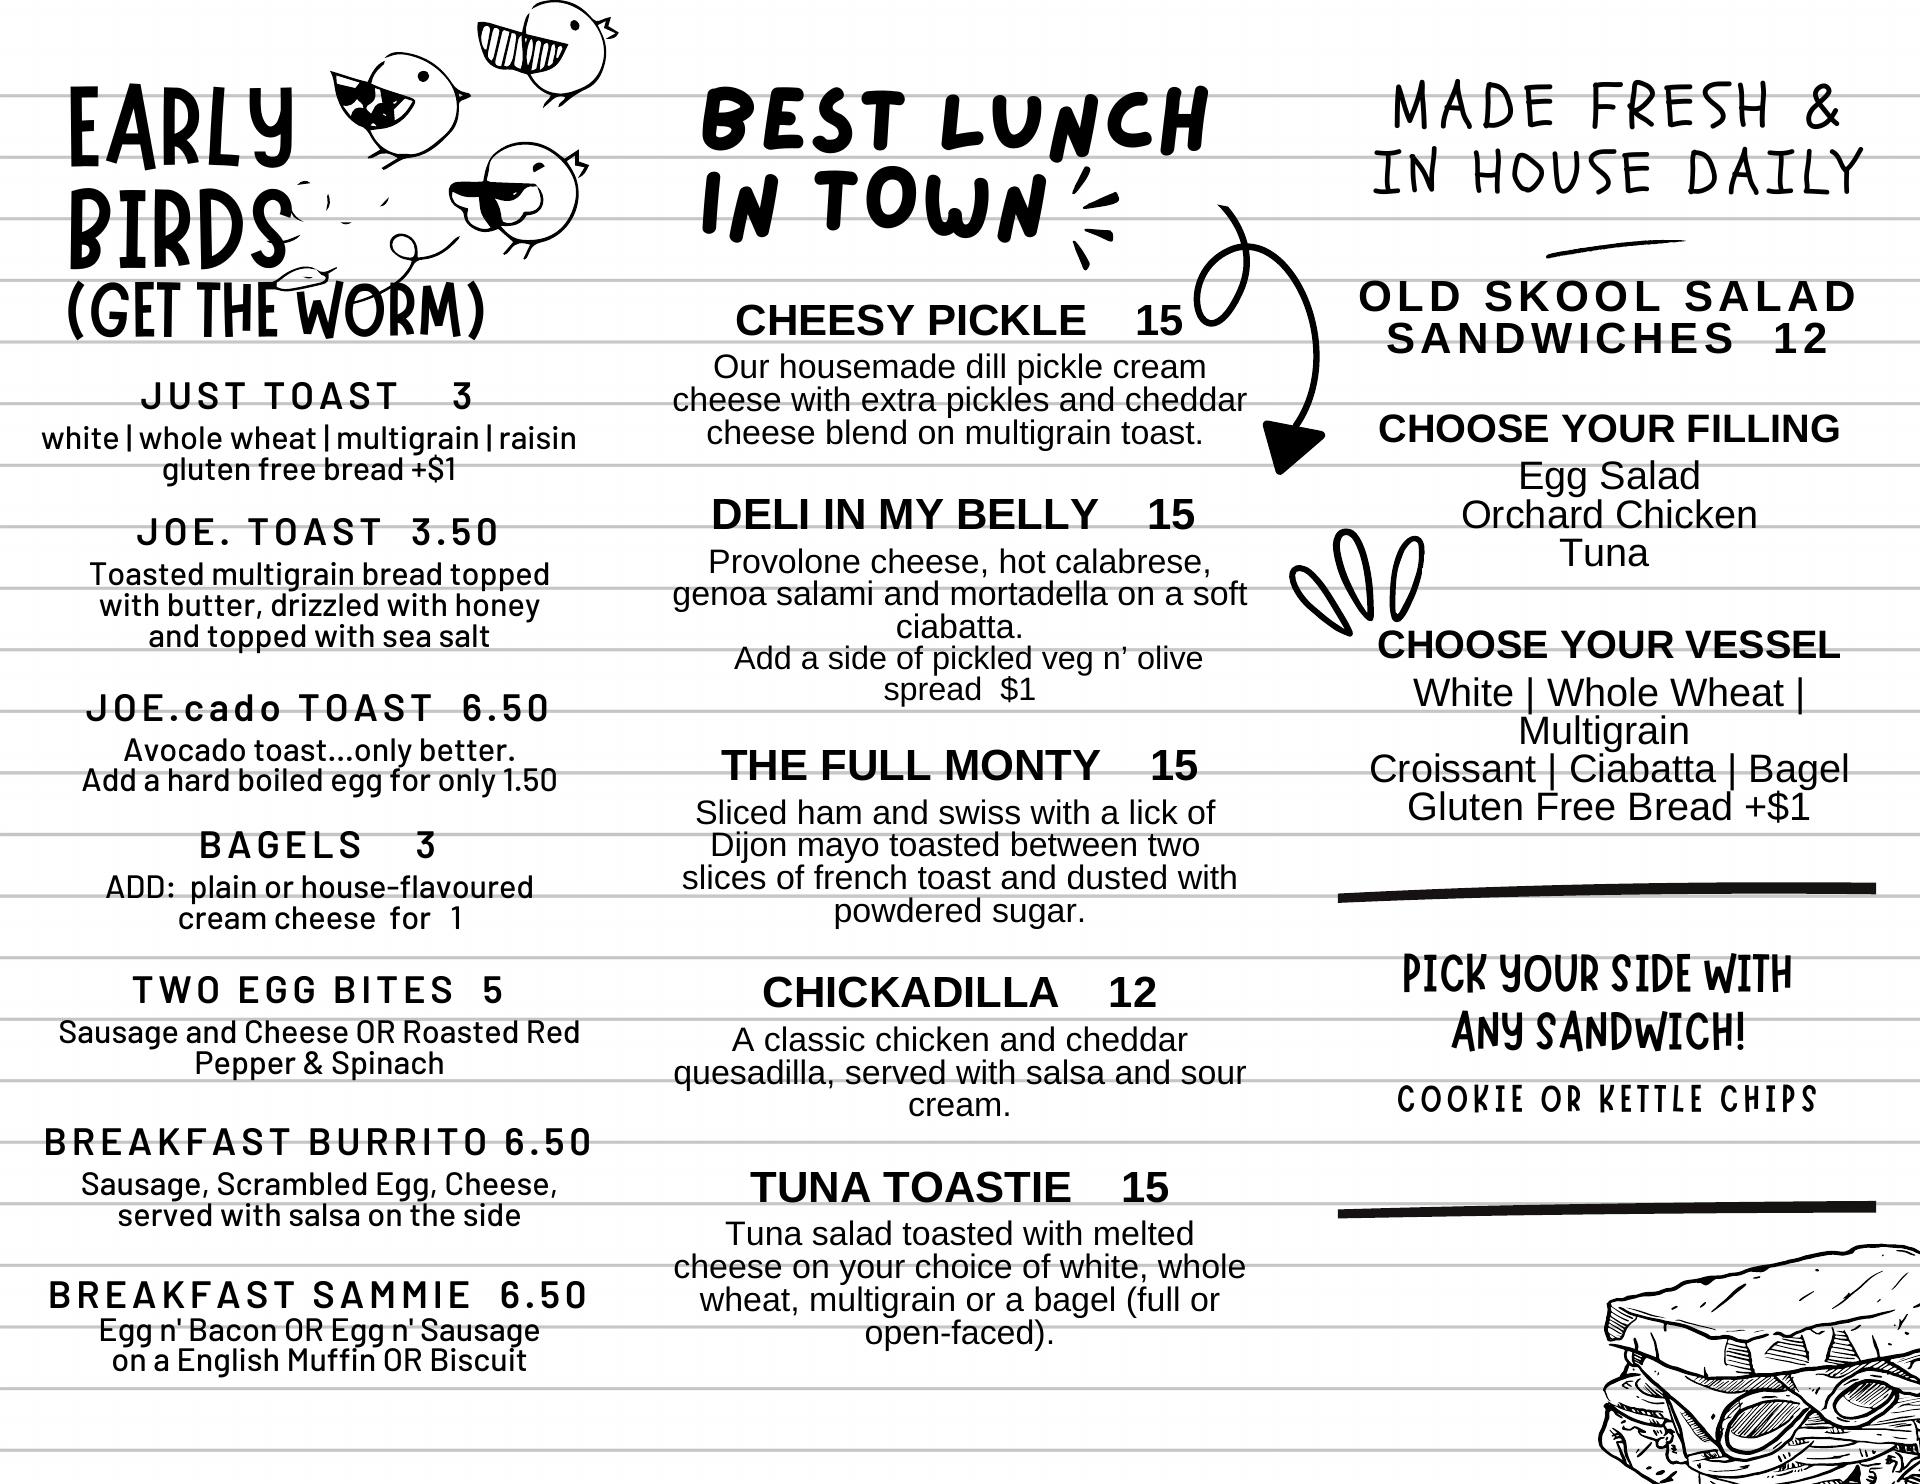 EARLY
BIRDS
(GET THE WORM)
JUST TOAST 3
white | whole wheat | multigrain | raisin
gluten free bread +$1
JOE. TOAST 3.50
Toasted multigrain bread topped
with butter, drizzled with honey
and topped with sea salt
JOE.cado TOAST 6.50
Avocado toast...only better.
Add a hard boiled egg for only 1.50
BAGELS 3
ADD: plain or house-flavoured
cream cheese for 1
TWO EGG BITES 5
Sausage and Cheese OR Roasted Red
Pepper & Spinach
BREAKFAST BURRITO 6.50
Sausage, Scrambled Egg, Cheese,
served with salsa on the side
BREAKFAST SAMMIE 6.50
Egg n' Bacon OR Egg n' Sausage
on a English Muffin OR Biscuit
BEST LUNCH
IN TOWN
CHEESY PICKLE 15
Our housemade dill pickle cream
cheese with extra pickles and cheddar
cheese blend on multigrain toast.
DELI IN MY BELLY 15
Provolone cheese, hot calabrese,
genoa salami and mortadella on a soft
ciabatta.
Add a side of pickled veg n’ olive
spread $1
THE FULL MONTY 15
Sliced ham and swiss with a lick of
Dijon mayo toasted between two
slices of french toast and dusted with
powdered sugar.
CHICKADILLA 12
A classic chicken and cheddar
quesadilla, served with salsa and sour
cream.
TUNA TOASTIE 15
Tuna salad toasted with melted
cheese on your choice of white, whole
wheat, multigrain or a bagel (full or
open-faced).
MADE FRESH &
IN HOUSE DAILY
OLD SKOOL SALAD
SANDWICHES 12
CHOOSE YOUR FILLING
Egg Salad
Orchard Chicken
Tuna
CHOOSE YOUR VESSEL
White | Whole Wheat |
Multigrain
Croissant | Ciabatta | Bagel
Gluten Free Bread +$1
PICK YOUR SIDE WITH
ANY SANDWICH!
COOKIE OR KETTLE CHIPS